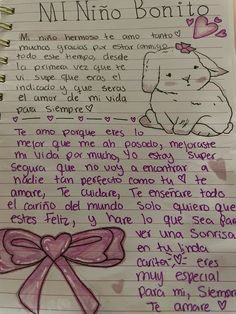 MI Niño Bonito
mi niño hermoso te amo tanto
muchas gracias por estar conmigo
todo este tiempo, desde
la primera vez que te
vi supe que eras el
indicado y que serás
el amor de mi vida
para siempre
Te amo porque eres lo
mejor que me ah pasado, mejoraste
mi vida por mucho, Yo estoy super
segura que no voy a encontrar a
nadie tan perfecto como tu te
amare, Te cuidare, Te enseñare todo
el cariño del mundo Solo quiero que
estes feliz, y hare lo que sea para
ver una Sonrisa
en tu linda
carita eres
muy especial
para mi, Siempre
Te amare